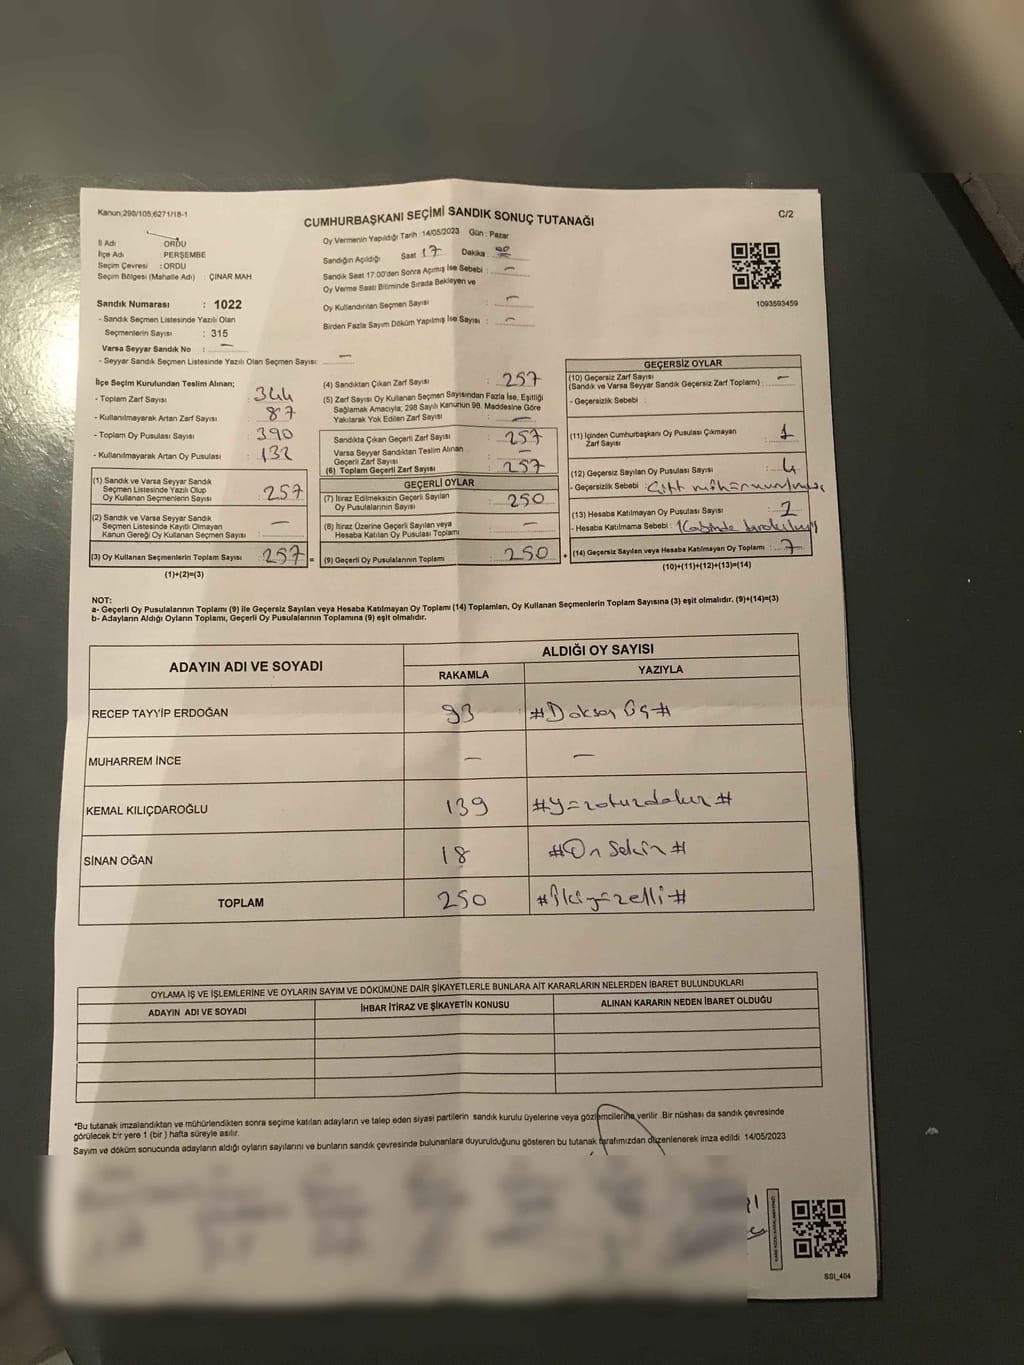 Kanun;298/105;6271/18-1
CUMHURBAŞKANI SEÇİMİ SANDIK SONUÇ TUTANAĞI
C/2
İl Adı : ORDU
İlçe Adı : PERŞEMBE
Seçim Çevresi : ORDU
Seçim Bölgesi (Mahalle Adı) : ÇINAR MAH.
Sandık Numarası : 1022
- Sandık Seçmen Listesinde Yazılı Olan
Seçmenlerin Sayısı : 315
Varsa Seyyar Sandık No : —
- Seyyar Sandık Seçmen Listesinde Yazılı Olan Seçmen Sayısı: —
Oy Vermenin Yapıldığı Tarih : 14/05/2023 Gün : Pazar
Sandığın Açıldığı Saat 17 Dakika : 00
Sandık Saat 17:00'den Sonra Açımış İse Sebebi : —
Oy Verme Saati Bitiminde Sırada Bekleyen ve
Oy Kullandırılan Seçmen Sayısı : —
Birden Fazla Sayım Döküm Yapılmış İse Sayısı : —
1093593459
İlçe Seçim Kurulundan Teslim Alınan;
- Toplam Zarf Sayısı : 344
- Kullanılmayarak Artan Zarf Sayısı : 87
- Toplam Oy Pusulası Sayısı : 390
- Kullanılmayarak Artan Oy Pusulası : 132
(1) Sandık ve Varsa Seyyar Sandık
Seçmen Listesinde Yazılı Olup
Oy Kullanan Seçmenlerin Sayısı : 257
(2) Sandık ve Varsa Seyyar Sandık
Seçmen Listesinde Kayıtlı Olmayan
Kanun Gereği Oy Kullanan Seçmen Sayısı : —
(3) Oy Kullanan Seçmenlerin Toplam Sayısı : 257 =
(1)+(2)=(3)
(4) Sandıktan Çıkan Zarf Sayısı : 257
(5) Zarf Sayısı Oy Kullanan Seçmen Sayısından Fazla İse, Eşitliği
Sağlamak Amacıyla; 298 Sayılı Kanunun 98. Maddesine Göre
Yakılarak Yok Edilen Zarf Sayısı : —
Sandıkta Çıkan Geçerli Zarf Sayısı : 257
Varsa Seyyar Sandıktan Teslim Alınan
Geçerli Zarf Sayısı : —
(6) Toplam Geçerli Zarf Sayısı : 257
GEÇERLİ OYLAR
(7) İtiraz Edilmeksizin Geçerli Sayılan
Oy Pusulalarının Sayısı : 250
(8) İtiraz Üzerine Geçerli Sayılan veya
Hesaba Katılan Oy Pusulası Toplamı : —
(9) Geçerli Oy Pusulalarının Toplamı : 250 +
GEÇERSİZ OYLAR
(10) Geçersiz Zarf Sayısı
(Sandık ve Varsa Seyyar Sandık Geçersiz Zarf Toplamı) : —
- Geçersizlik Sebebi :
(11) İçinden Cumhurbaşkanı Oy Pusulası Çıkmayan
Zarf Sayısı : 1
(12) Geçersiz Sayılan Oy Pusulası Sayısı : 4
- Geçersizlik Sebebi :
(13) Hesaba Katılmayan Oy Pusulası Sayısı : 2
- Hesaba Katılmama Sebebi :
(14) Geçersiz Sayılan veya Hesaba Katılmayan Oy Toplamı : 7
(10)+(11)+(12)+(13)=(14)
NOT:
a- Geçerli Oy Pusulalarının Toplamı (9) ile Geçersiz Sayılan veya Hesaba Katılmayan Oy Toplamı (14) Toplamları, Oy Kullanan Seçmenlerin Toplam Sayısına (3) eşit olmalıdır. (9)+(14)=(3)
b- Adayların Aldığı Oyların Toplamı, Geçerli Oy Pusulalarının Toplamına (9) eşit olmalıdır.
ADAYIN ADI VE SOYADI
ALDIĞI OY SAYISI
RAKAMLA
YAZIYLA
RECEP TAYYİP ERDOĞAN 93 #Doksan Üç#
MUHARREM İNCE — —
KEMAL KILIÇDAROĞLU 139 #Yüzotuzdokuz#
SİNAN OĞAN 18 #On Sekiz#
TOPLAM 250 #İkiyüzelli#
OYLAMA İŞ VE İŞLEMLERİNE VE OYLARIN SAYIM VE DÖKÜMÜNE DAİR ŞİKAYETLERLE BUNLARA AİT KARARLARIN NELERDEN İBARET BULUNDUKLARI
ADAYIN ADI VE SOYADI
İHBAR İTİRAZ VE ŞİKAYETİN KONUSU
ALINAN KARARIN NEDEN İBARET OLDUĞU
*Bu tutanak imzalandıktan ve mühürlendikten sonra seçime katılan adayların ve talep eden siyasi partilerin sandık kurulu üyelerine veya gözlemcilerine verilir .Bir nüshası da sandık çevresinde
görülecek bir yere 1 (bir ) hafta süreyle asılır.
Sayım ve döküm sonucunda adayların aldığı oyların sayılarını ve bunların sandık çevresinde bulunanlara duyurulduğunu gösteren bu tutanak tarafımızdan düzenlenerek imza edildi. 14/05/2023
SSI_404